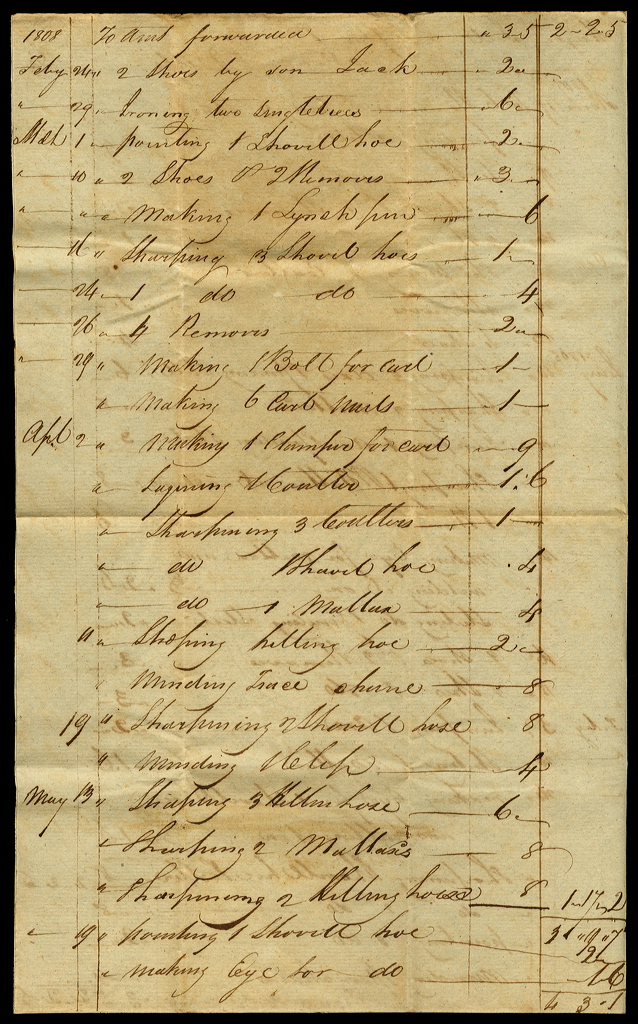 1808 To Amt forwarded " 35 2-2-5
Feby 24 " 2 Shoes by son Jack 2 "
" 29 " Ironing two singletrees 6 "
Mch 1 " pointing 1 Shovell hoe 2 "
" 10 " 2 Shoes & 2 Removes " 3 "
" " " Making 1 Lynch pin 6
16 " Sharping 3 Shovel hoes 1 "
24 " 1 do do 4
26 " 4 Removes 2 "
" 29 " Making 1 Bolt for cart 1 -
" Making 6 Cart nails 1 -
Apl. 2 " Making 1 Clamper for cart " 9
" 1 Coulter 1 " 6
" Sharpining 3 Coulters 1 -
" do 1 Shovel hoe 4
" do 1 Mattax 4
11 " hilling hoe 2 "
" Minding Trace chane 8
19 " Sharpining 2 Shovell hose 8
" Minding 1 Clep 4
May 13 " 3 hose 6 "
" Sharping 2 Mattaxis 8
" Sharpining 2 Hilling 8 1 " 17 " 2
" 19 " pointing 1 Shovell hoe 3 " 19 " 7
2 "
" Making Eye for do 1 " 6
4 3 " 1